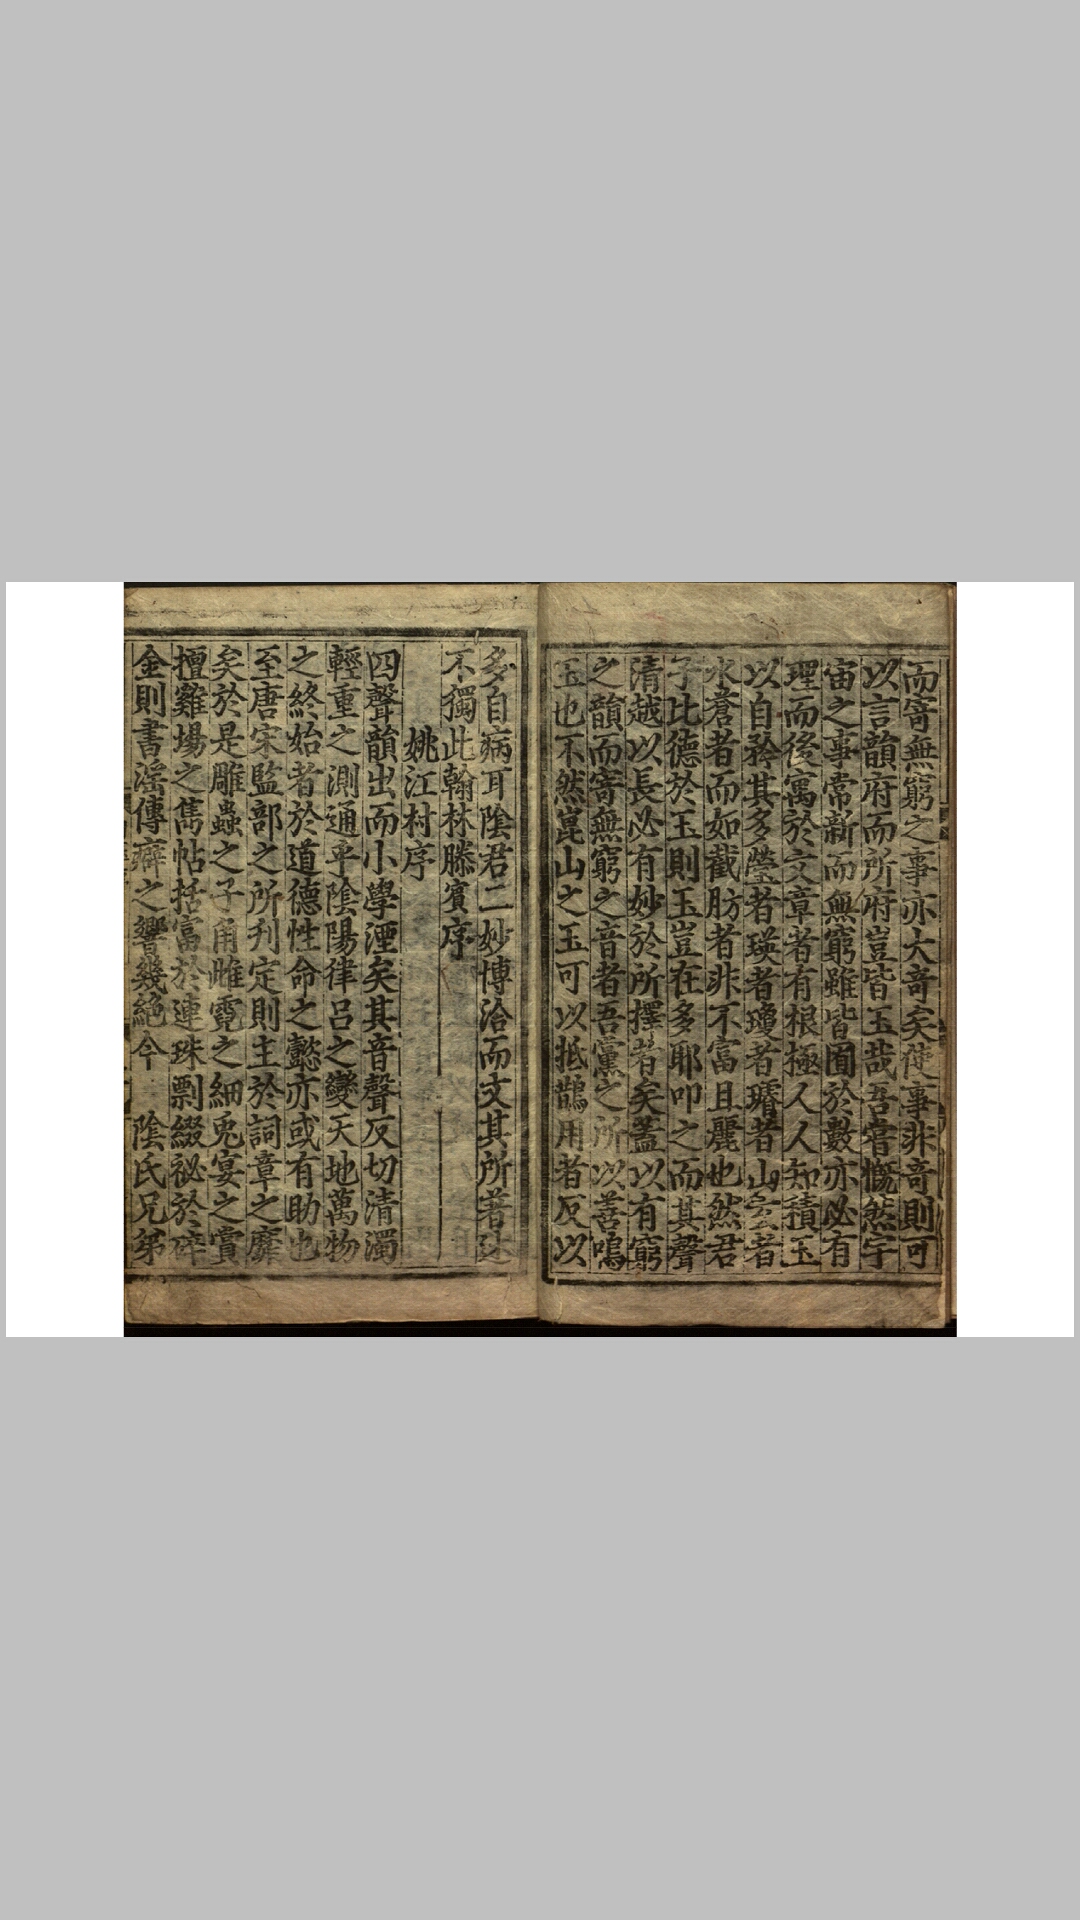 而寄無窮之事亦大奇矣使事非奇則可
以言韻府而所府豈皆玉哉吾嘗慨然宇
宙之事常新而無窮雖皆囿於數亦必有
理而後寓於文章者有根極人人知積玉
以自矜其多瑩者瑛者瓊者璿者山玄者
水蒼者而如截肪者非不富且麗也然君
子比德於玉則玉豈在多耶叩之而其聲
清越以長必有妙於所擇者矣蓋以有窮
之韻而寄無窮之音者吾黨之所以善鳴
玉也不然崑山之玉可以抵鵲用者反以
多自病耳陰君二妙博洽而文其所著述
不獨此翰林滕賓序
姚江村序
四聲韻出而小學湮矣其音聲反切清濁
輕重之測通乎陰陽律呂之變天地萬物
之終始者於道德性命之懿亦或有助也
至唐宋監部之所刋定則主於詞章之靡
矣於是雕蟲之子角雌霓之細兎宴之賞
擅雞塲之雋帖括富於連珠剽綴祕於碎
金則書滛傳癖之響幾絶今 陰氏兄弟